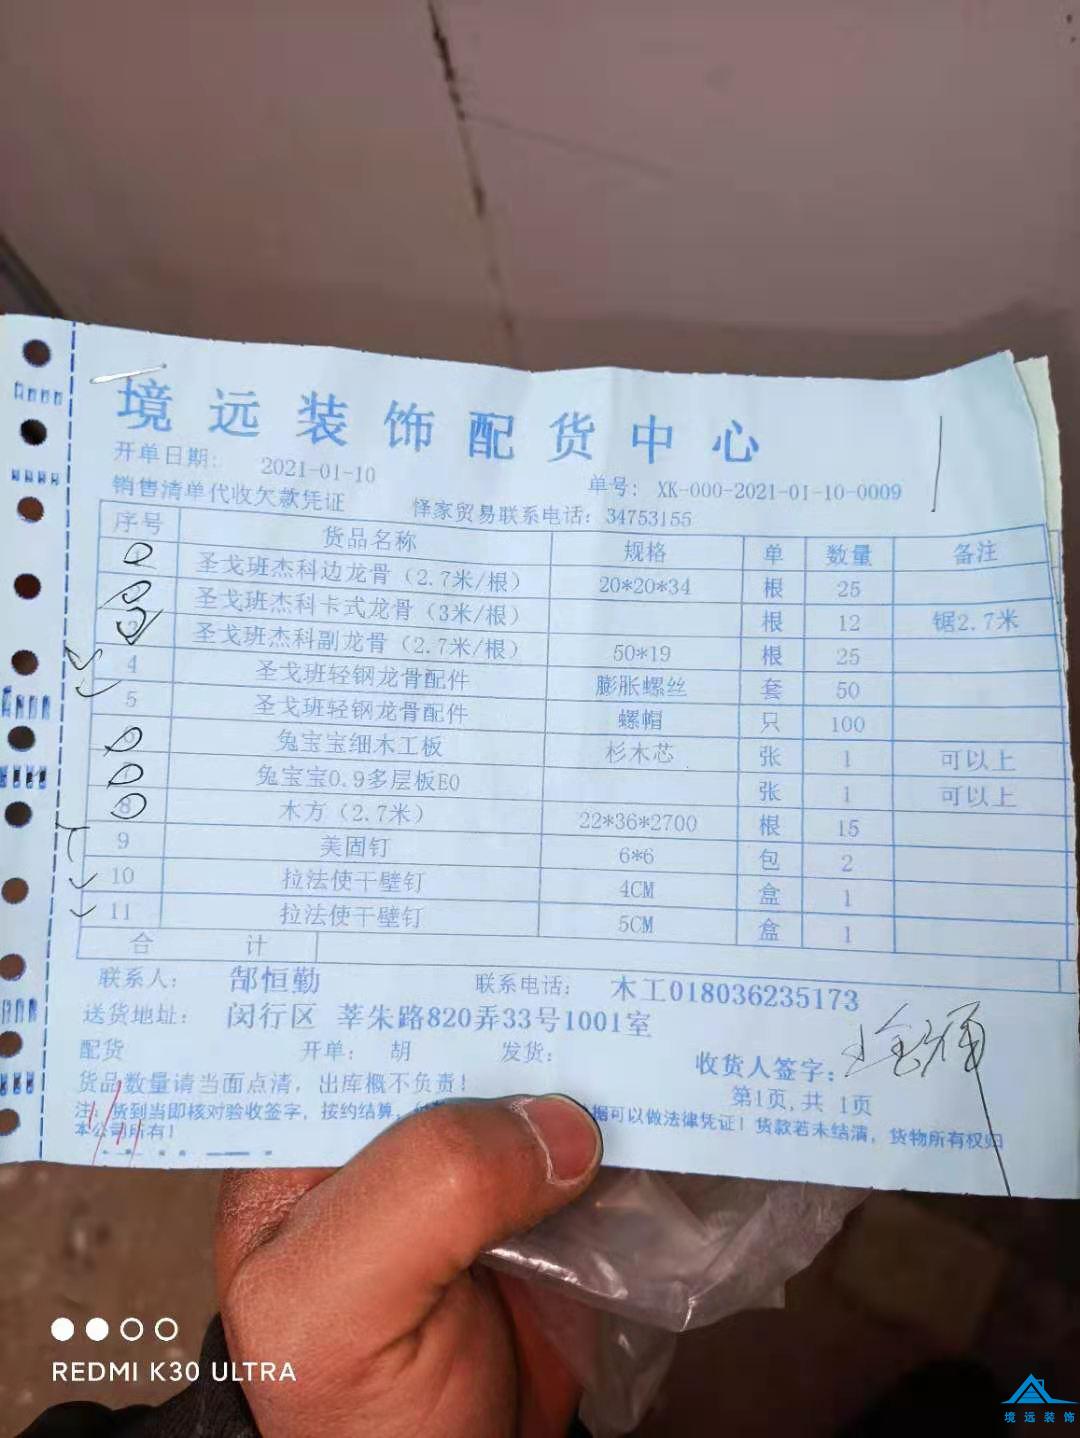 境远装饰配货中心
开单日期： 2021-01-10
单号： XK-000-2021-01-10-0009
销售清单代收欠款凭证 怿家贸易联系电话：34753155
序号 货品名称 规格 单 数量 备注
圣戈班杰科边龙骨（2.7米/根） 20*20*34 根 25
圣戈班杰科卡式龙骨（3米/根） 根 12 锯2.7米
3 圣戈班杰科副龙骨（2.7米/根） 50*19 根 25
4 圣戈班轻钢龙骨配件 膨胀螺丝 套 50
5 圣戈班轻钢龙骨配件 螺帽 只 100
兔宝宝细木工板 杉木芯 张 1 可以上
兔宝宝0.9多层板E0 张 1 可以上
8 木方（2.7米） 22*36*2700 根 15
9 美固钉 6*6 包 2
10 拉法使干壁钉 4CM 盒 1
11 拉法使干壁钉 5CM 盒 1
合 计
联系人： 郜恒勤 联系电话： 木工018036235173
送货地址： 闵行区 莘朱路820弄33号1001室
配货 开单： 胡 发货： 收货人签字：
货品数量请当面点清，出库概不负责！ 第1页，共 1页
注：货到当即核对验收签字，按约结算，据可以做法律凭证！货款若未结清，货物所有权归
本公司所有！
REDMI K30 ULTRA
境远装饰